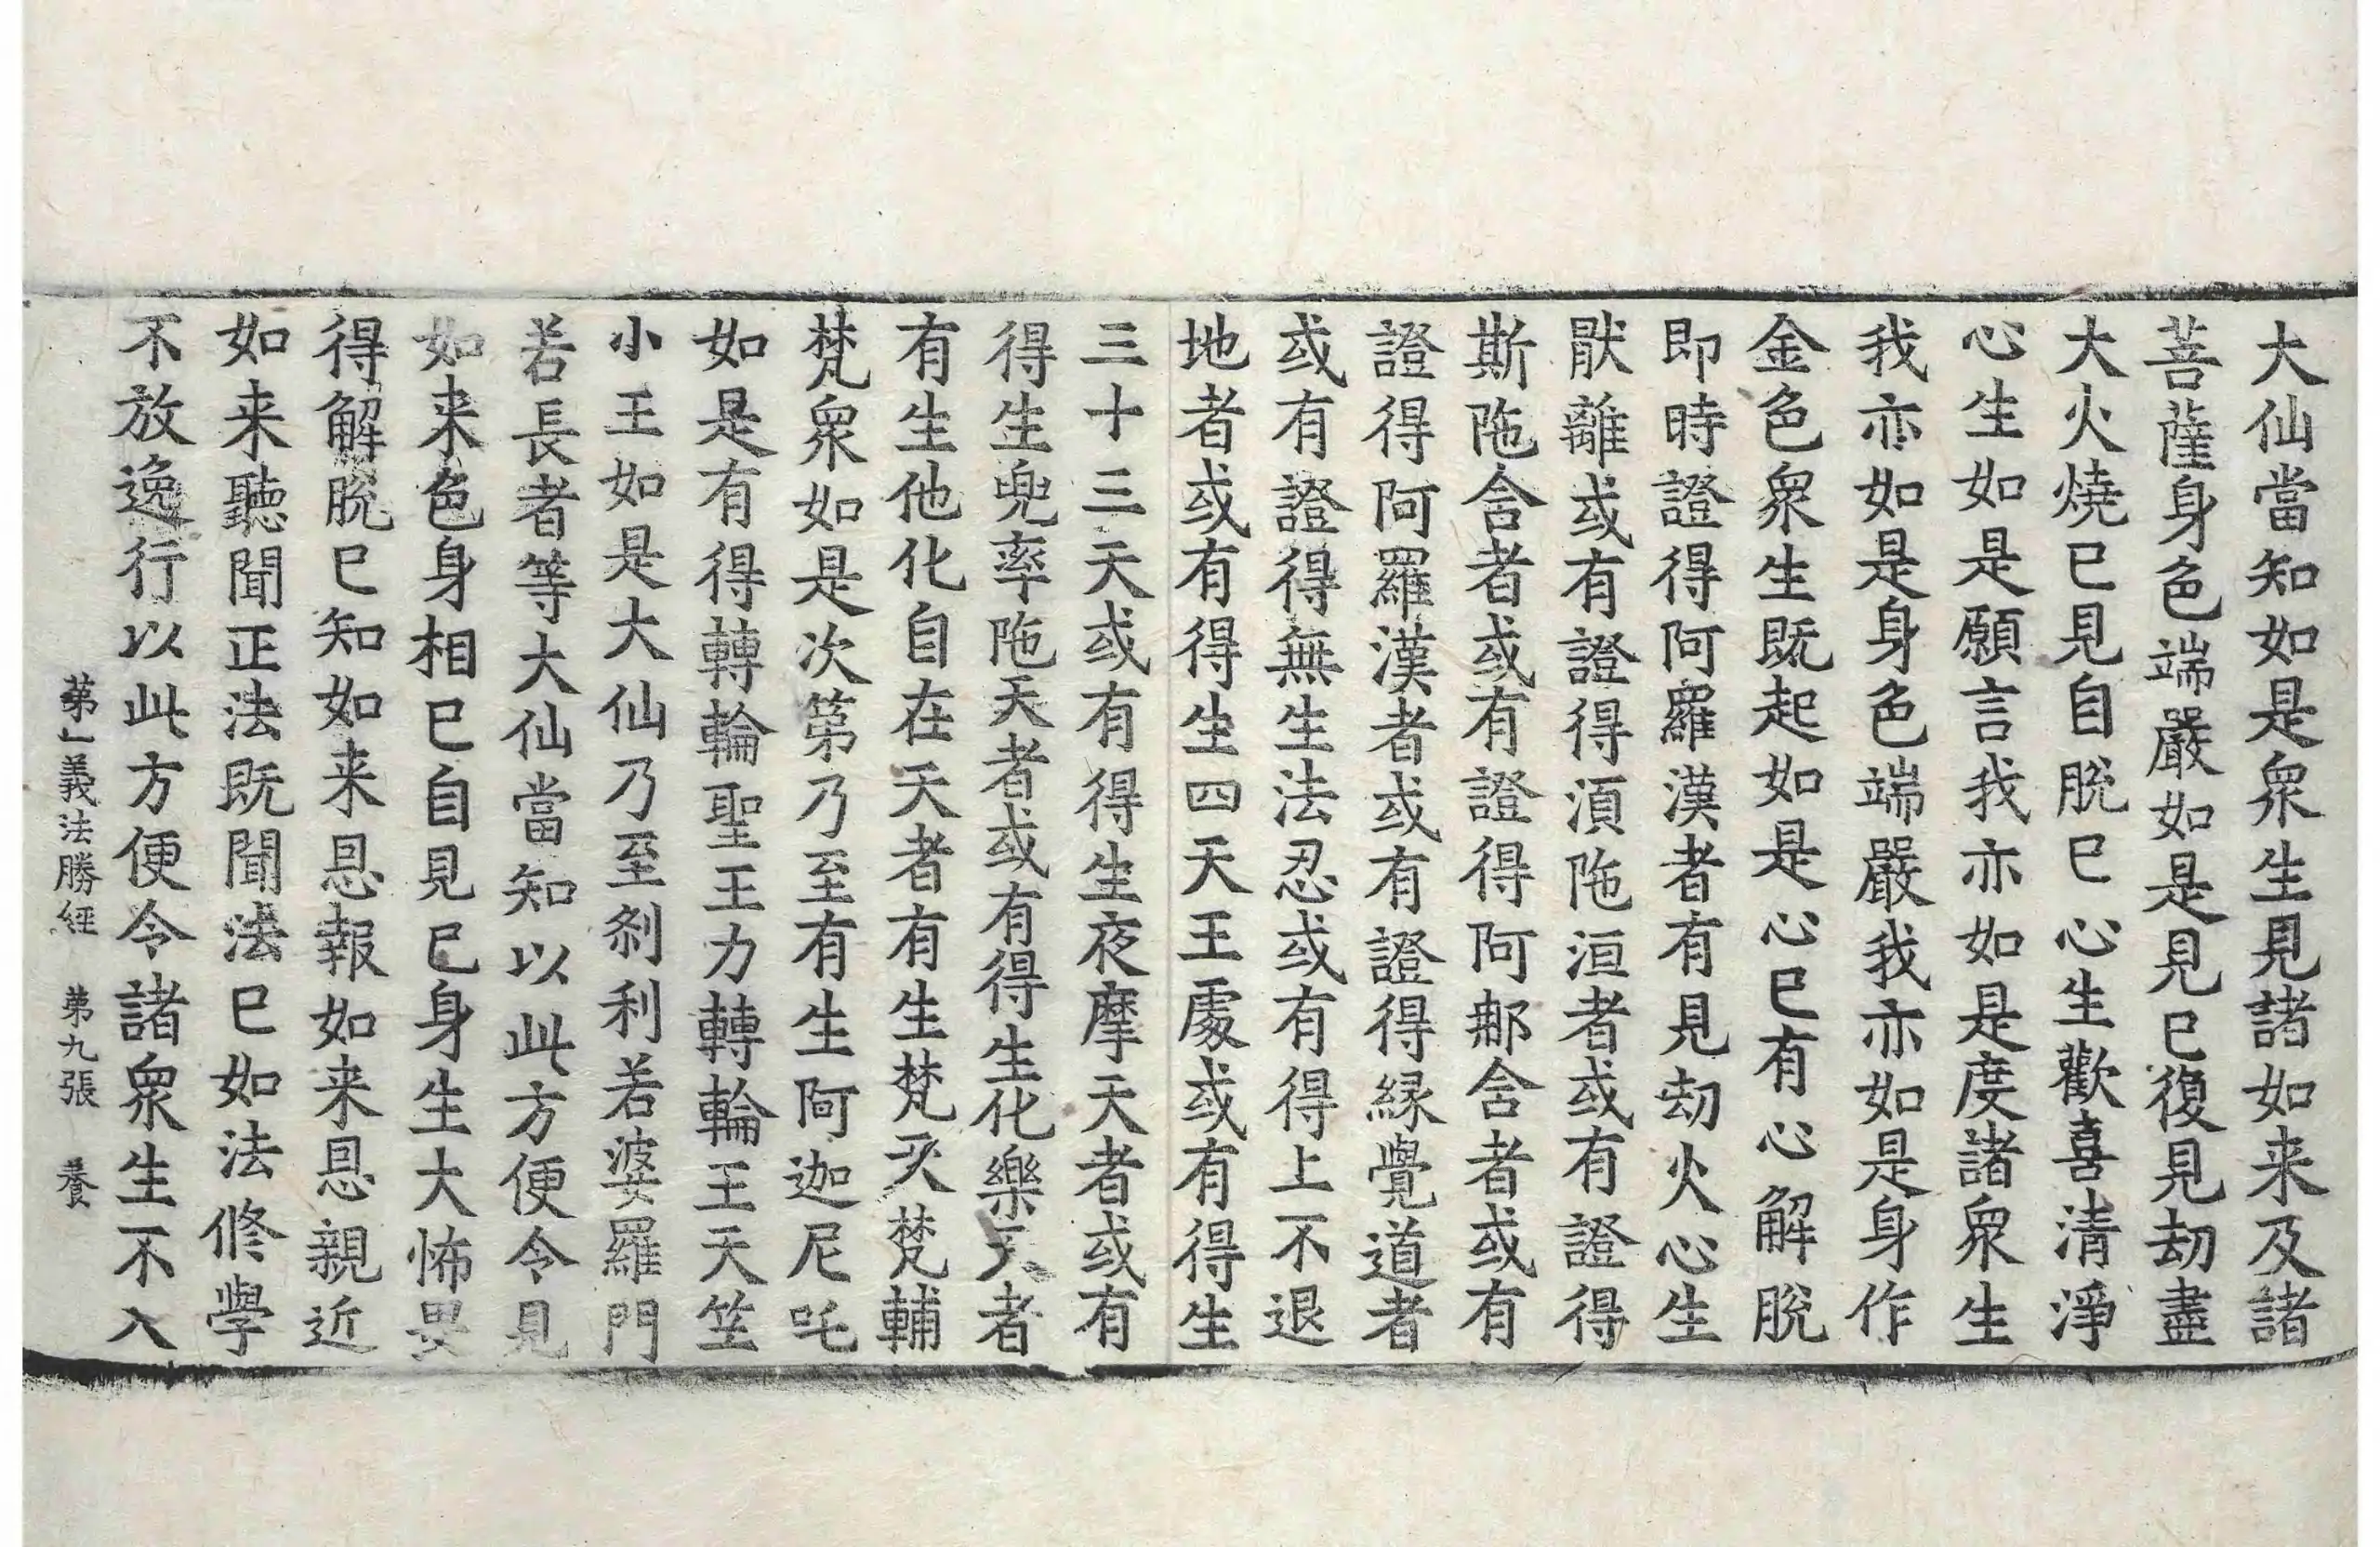 大仙當知如是衆生見諸如来及諸
菩薩身色端嚴如是見已復見劫盡
大火燒已見自脫已心生歡喜清淨
心生如是願言我亦如是度諸衆生
我亦如是身色端嚴我亦如是身作
金色衆生既起如是心已有心解脫
即時證得阿羅漢者有見劫火心生
猒離或有證得湏陁洹者或有證得
斯陁含者或有證得阿那含者或有
證得阿羅漢者或有證得緣覺道者
或有證得無生法忍或有得上不退
地者或有得生四天王處或有得生
三十三天或有得生夜摩天者或有
得生兜率陁天者或有得生化樂天者
有生他化自在天者有生梵天梵輔
梵衆如是次第乃至有生阿迦尼吒
如是有得轉輪聖王力轉輪王天笁
小王如是大仙乃至剎利若婆羅門
若長者等大仙當知以此方便令見
如来色身相已自見已身生大怖畏
得解脫已知如来恩報如来恩親近
如来聽聞正法既聞法已如法修學
不放逸行以此方便令諸衆生不入
第一義法勝經　第九張　養